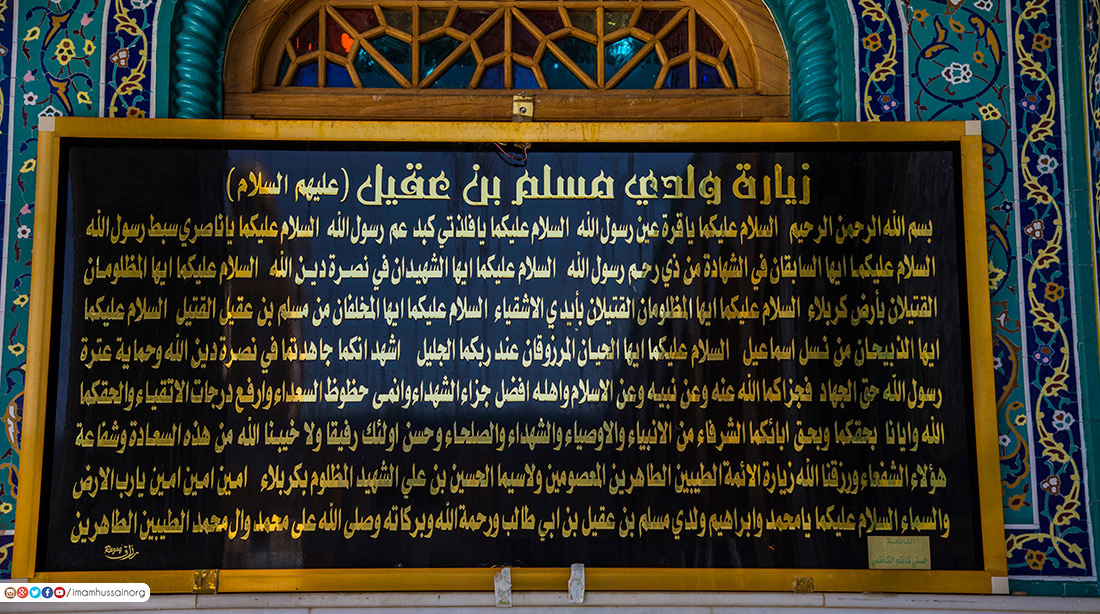 زيارة ولدي مسلم بن عقيل (عليهم السلام)
بسم الله الرحمن الرحيم السلام عليكما يا قرة عين رسول الله السلام عليكما يا فلذتي كبد عم رسول الله السلام عليكما ياناصري سبط رسول الله
السلام عليكما ايها السابقان في الشهادة من ذي رحم رسول الله السلام عليكما ايها الشهيدان في نصرة دين الله السلام عليكما ايها المظلومان
القتيلان بأرض كربلاء السلام عليكما ايها المظلومان القتيلان بأيدي الاشقياء السلام عليكما ايها المخلفان من مسلم بن عقيل القتيل السلام عليكما
ايها الذبيحان من نسل اسماعيل السلام عليكما ايها الحيان المرزوقان عند ربكما الجليل اشهد انكما جاهدتما في نصرة دين الله وحماية عترة
رسول الله حتى الجهاد فجزاكما الله عنه وعن نبيه وعن الاسلام واهله افضل جزاء الشهداء وانمى حظوظ السعداء وارفع درجات الاتقياء والحقكما
الله وايانا بحقكما وبحق ابائكما الشرفاء من الانبياء والاوصياء والشهداء والصلحاء وحسن اولئك رفيقا ولا خيبنا الله من هذه السعادة وشفاعة
هؤلاء الشفعاء ورزقنا الله زيارة الائمة الطيبين الطاهرين المعصومين ولاسيما الحسين بن علي الشهيد المظلوم بكربلاء امين امين امين يارب الارض
والسماء السلام عليكما يامحمد وابراهيم ولدي مسلم بن عقيل بن ابي طالب ورحمة الله وبركاته وصلى الله على محمد وال محمد الطيبين الطاهرين
الفاتحة
حسني كاظم الكاظمي
/imamhussainorg